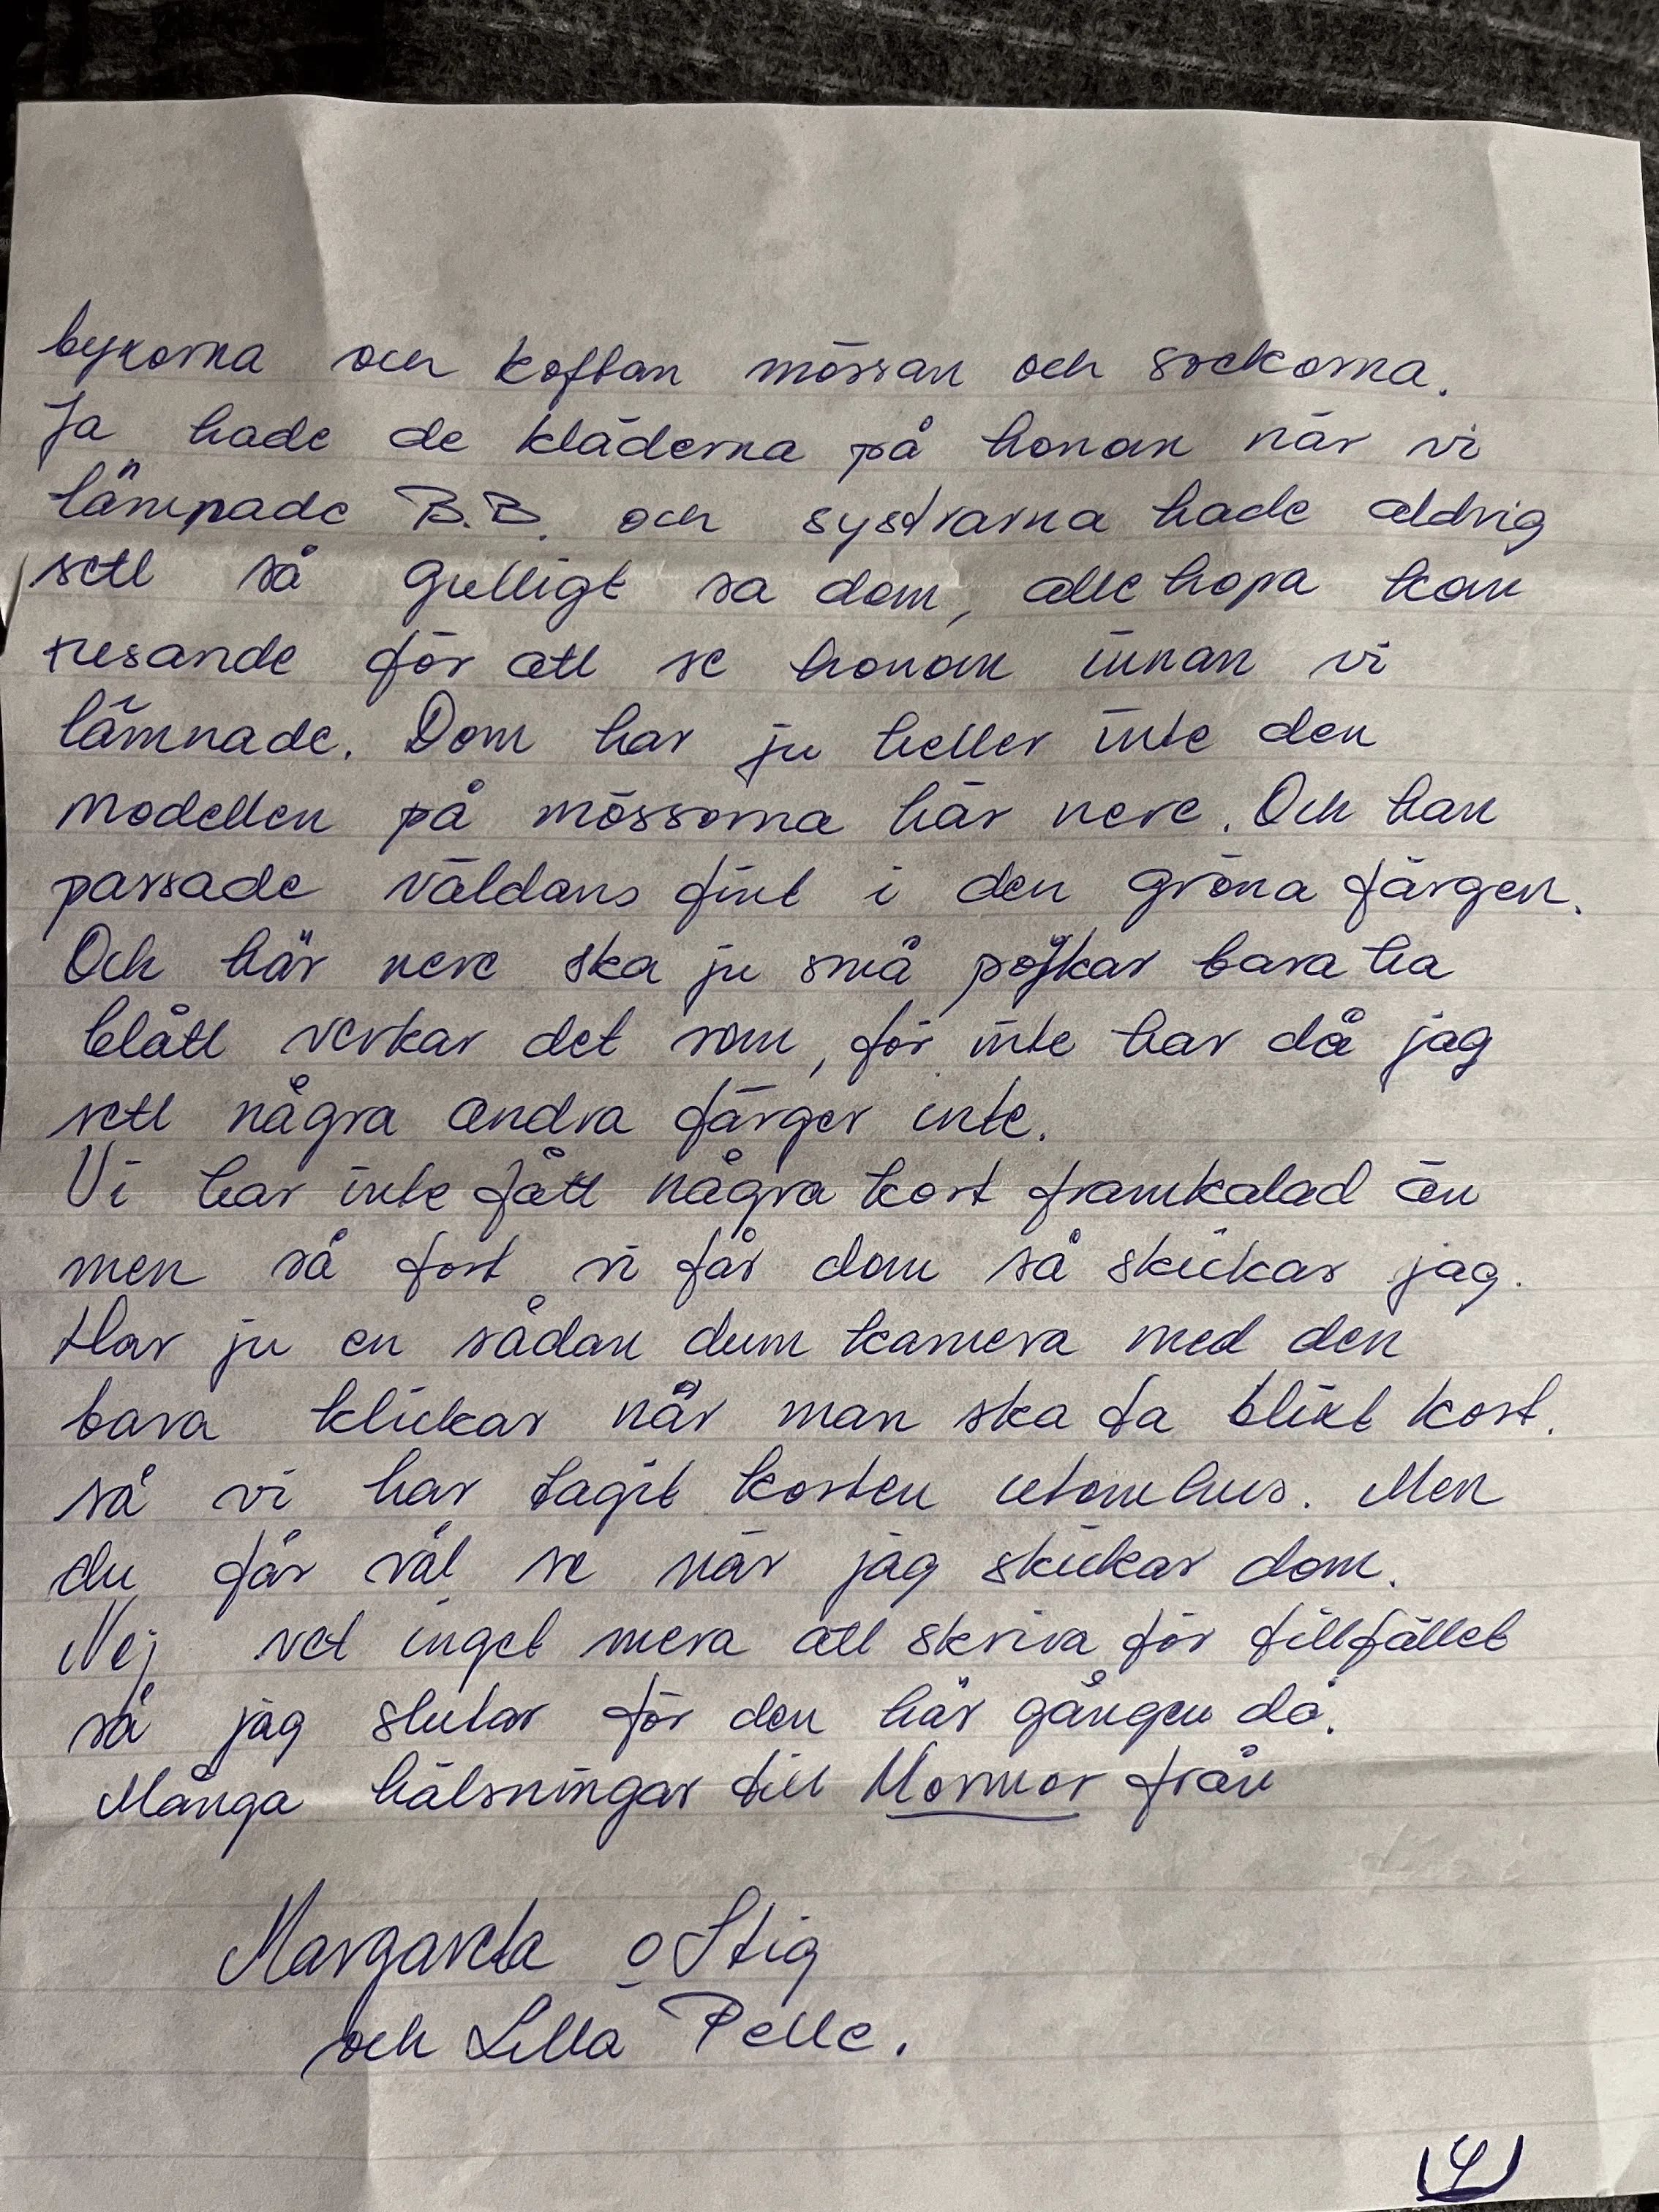 byxorna och koftan mössan och sockorna.
Ja hade de kläderna på honom när vi
lämpade B.B. och systrarna hade aldrig
sett så gulligt sa dom, alle hopa kom
rusande för att se honom innan vi
lämnade. Dom har ju heller inte den
modellen på mössorna här nere. Och han
passade väldans fint i den gröna färgen.
Och här nere ska ju små pojkar bara ha
blått verkar det som, för inte har då jag
sett några andra färger inte.
Vi har inte fått några kort framkalad än
men så fort vi får dom så skickar jag.
Har ju en sådan dum kamera med den
bara klickar när man ska ta blixt kort.
så vi har tagit korten utomhus. Men
du får väl se när jag skickar dom.
Nej vet inget mera att skriva för tillfället
så jag slutar för den här gången då.
Många hälsningar till Mormor från
Margareta o Stig
och Lilla Pelle.
4